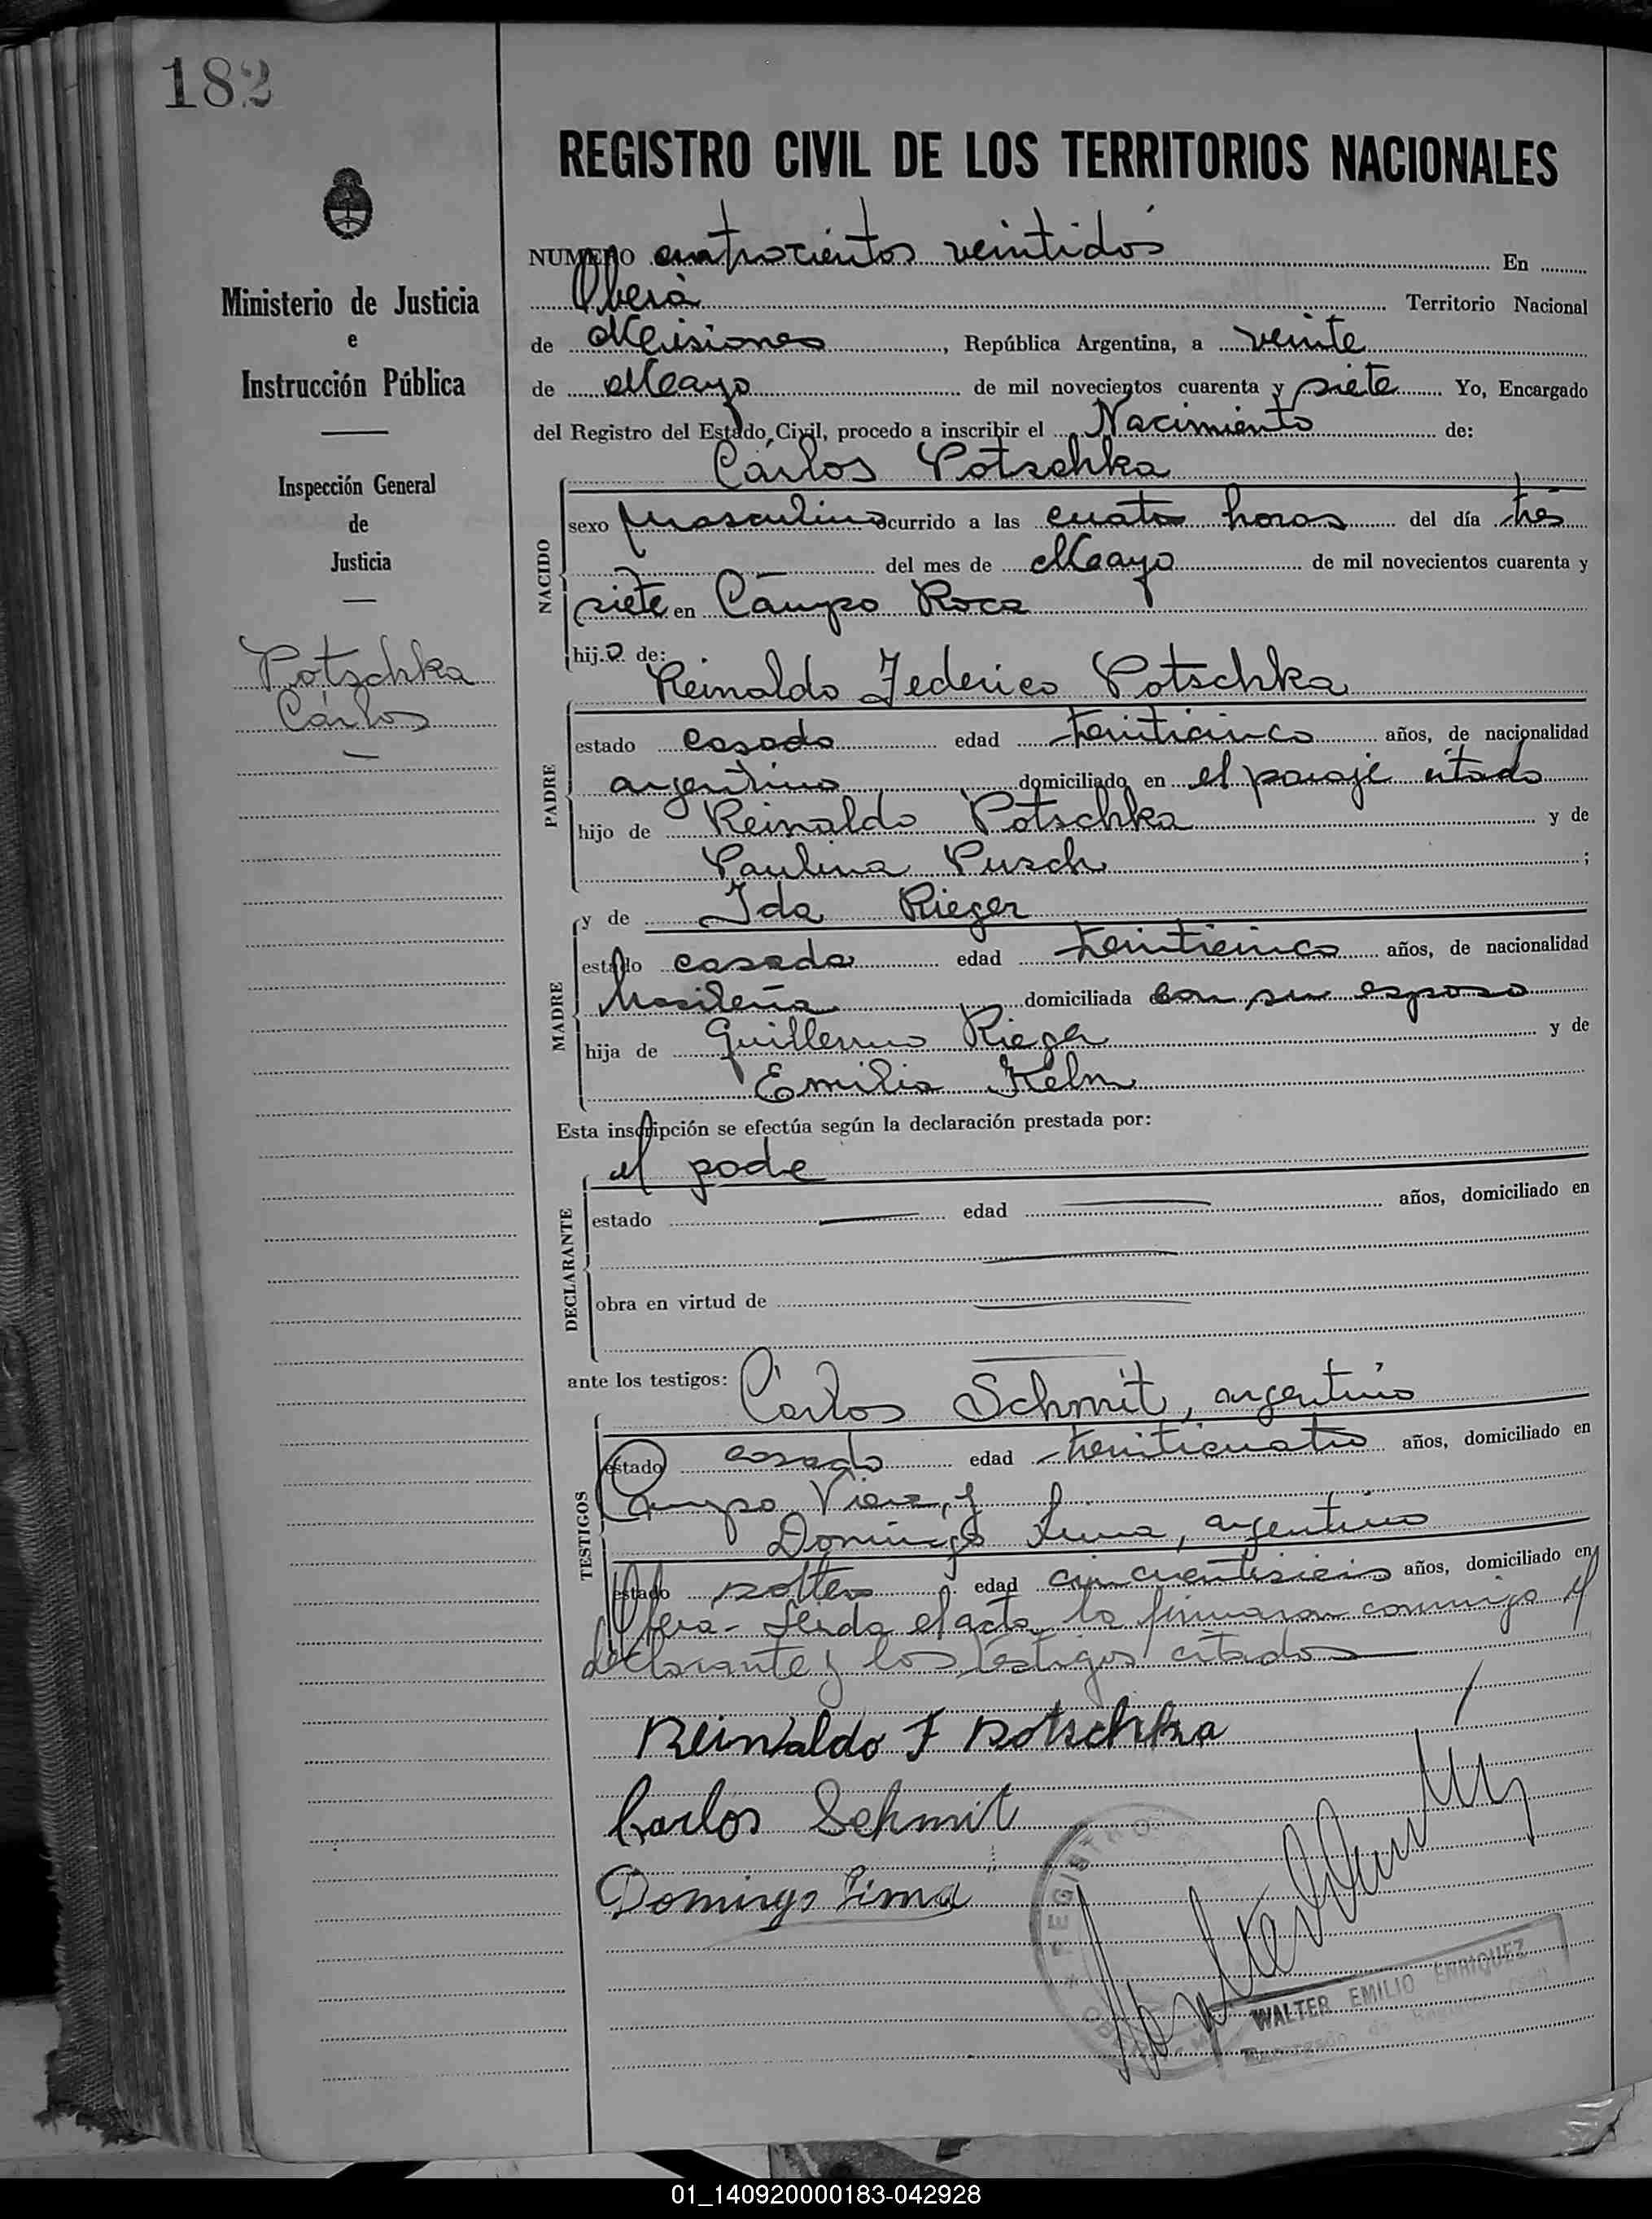 182
REGISTRO CIVIL DE LOS TERRITORIOS NACIONALES
NUMERO cuatrocientos veintidós En
Oberá Territorio Nacional
de Misiones, República Argentina, a veinte
de Mayo de mil novecientos cuarenta y siete Yo, Encargado
del Registro del Estado Civil, procedo a inscribir el Nacimiento de:
Carlos Potschka
NACIDO
sexo masculino ocurrido a las cuatro horas del día tres
del mes de Mayo de mil novecientos cuarenta y
siete en Campo Roca
hijo de:
Reinaldo Federico Potschka
PADRE
estado casado edad treinticinco años, de nacionalidad
argentino domiciliado en el paraje citado
hijo de Reinaldo Potschka y de
Paulina Pusch ;
y de Ida Rieger
MADRE
estado casada edad treinticinco años, de nacionalidad
brasileña domiciliada con su esposo
hija de Guillermo Rieger y de
Emilia Kelm
Esta inscripción se efectúa según la declaración prestada por:
el padre
DECLARANTE
estado edad años, domiciliado en
obra en virtud de
ante los testigos: Carlos Schmit, argentino
TESTIGOS
estado casado edad treinticuatro años, domiciliado en
Campo Viera, y
Domingo Lima, argentino
estado soltero edad cincuentiseis años, domiciliado en
Oberá - Leída el acta la firmaron conmigo el
declarante y los testigos citados
Reinaldo F Potschka
Carlos Schmit
Domingo Lima
WALTER EMILIO ENRIQUEZ
Encargado de Registro Civil
REGISTRO
Ministerio de Justicia
e
Instrucción Pública
Inspección General
de
Justicia
Potschka
Carlos
01_140920000183-042928